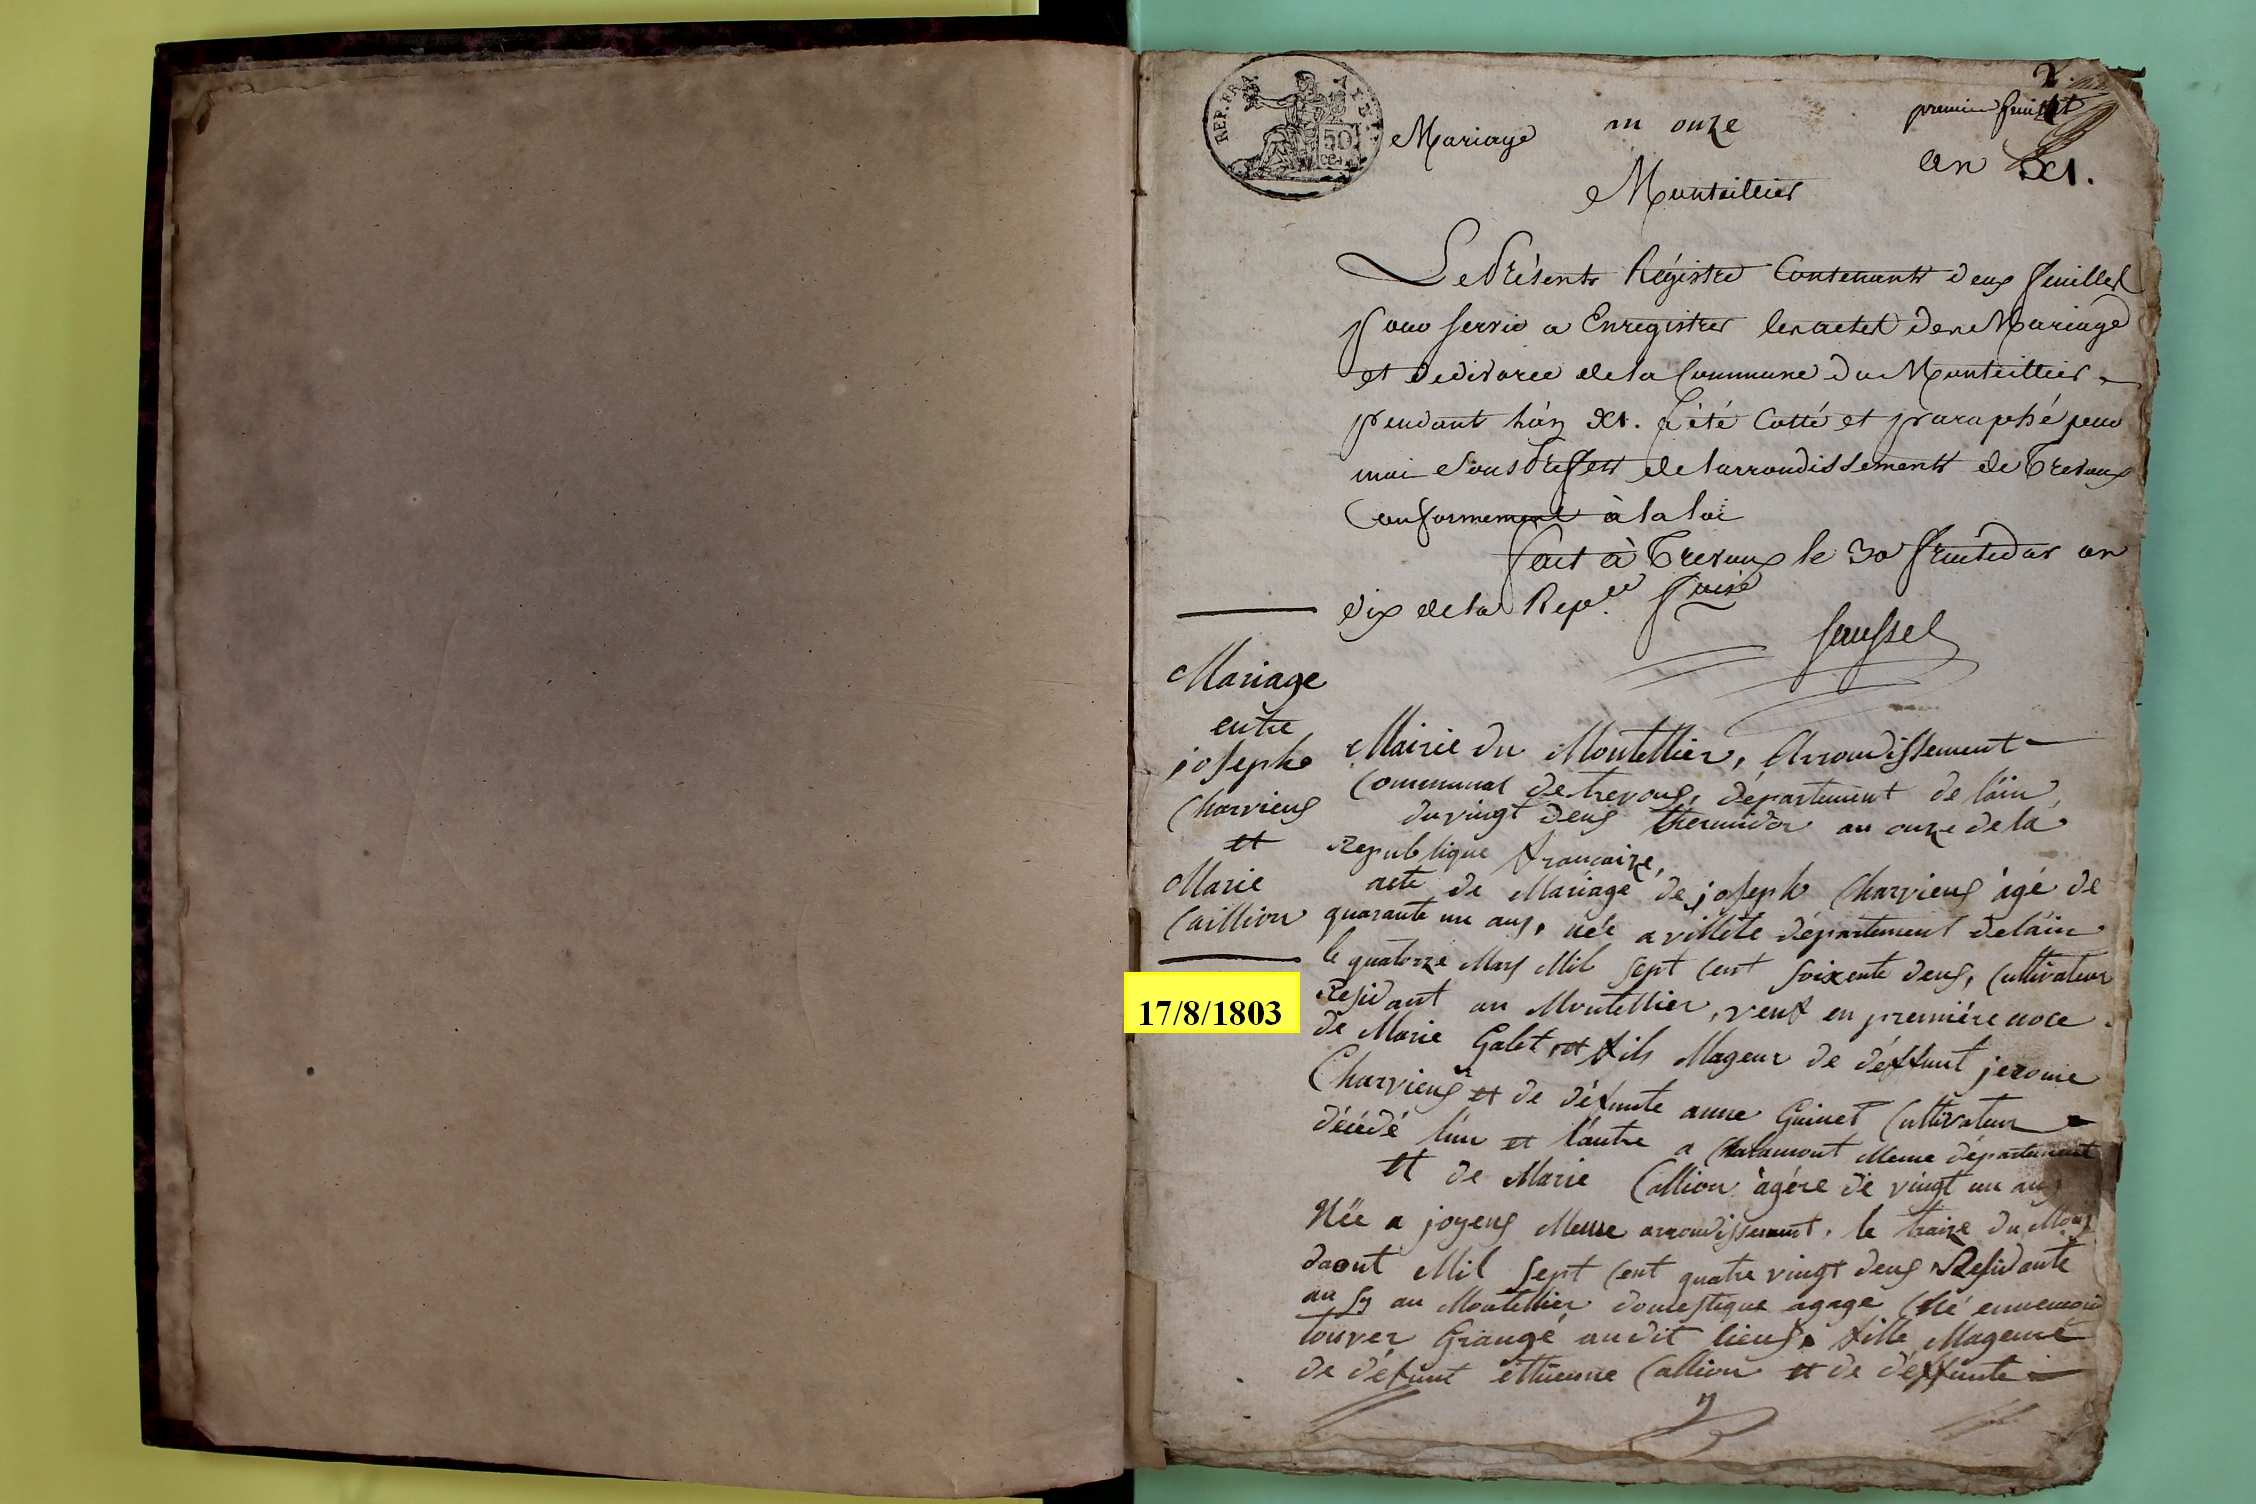 REP. FRA.
50
Mariage
an onze
premier feuillet
an XI.
Montellier
Le Présent Régistre Contenant deux feuillets
pour servir a Enregistrer les actes de Mariage
et de divorce de la Commune du Montellier
pendant l'an XI. a été Cotté et paraphé par
moi Sous Préfet de l'arrondissement de Trevoux
Conformement à la loi
fait à Trevoux le 30 fructidor an
dix de la Rep.que fçaise
Mariage
entre
joseph
Charvieux
et
Marie
Caillion
17/8/1803
Mairie du Montellier, Arrondissement
Communal de trevoux, département de láin,
du vingt deux thermidor an onze de la
Republique françaize,
acte de Mariage de joseph Charvieux àgé de
quarante un ans, née a villete département de láin
le quatorze Mars Mil sept cent soixente deux, Cultivateur
Residant au Montellier, veuf en premiére noce
de Marie Galet, et fils Mageur de déffunt jerome
Charvieux et de défunte anne Guinet Cultivateur
décédé lún et lautre a Chalamont Meme département
et de Marie Callion àgére de vingt un ans
Née a joyeux Meme arrondissement, le traize du Mois
daout Mil sept cent quatre vingt deux Residante
au sy au Montellier domestique agage Ché ennemond
touver Grangé audit lieux, fille Mageure
de défunt éttienne Callion et de déffunte